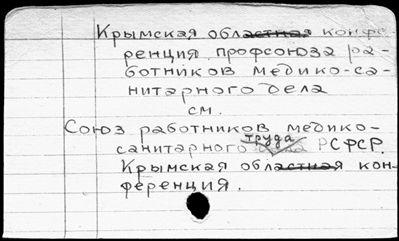 Крымская областная конфе-
ренция профсоюза ра-
ботников медико-са-
нитарного дела
см.
Союз работников медико-
труда
санитарного РСФСР.
Крымская областная кон-
ференция.